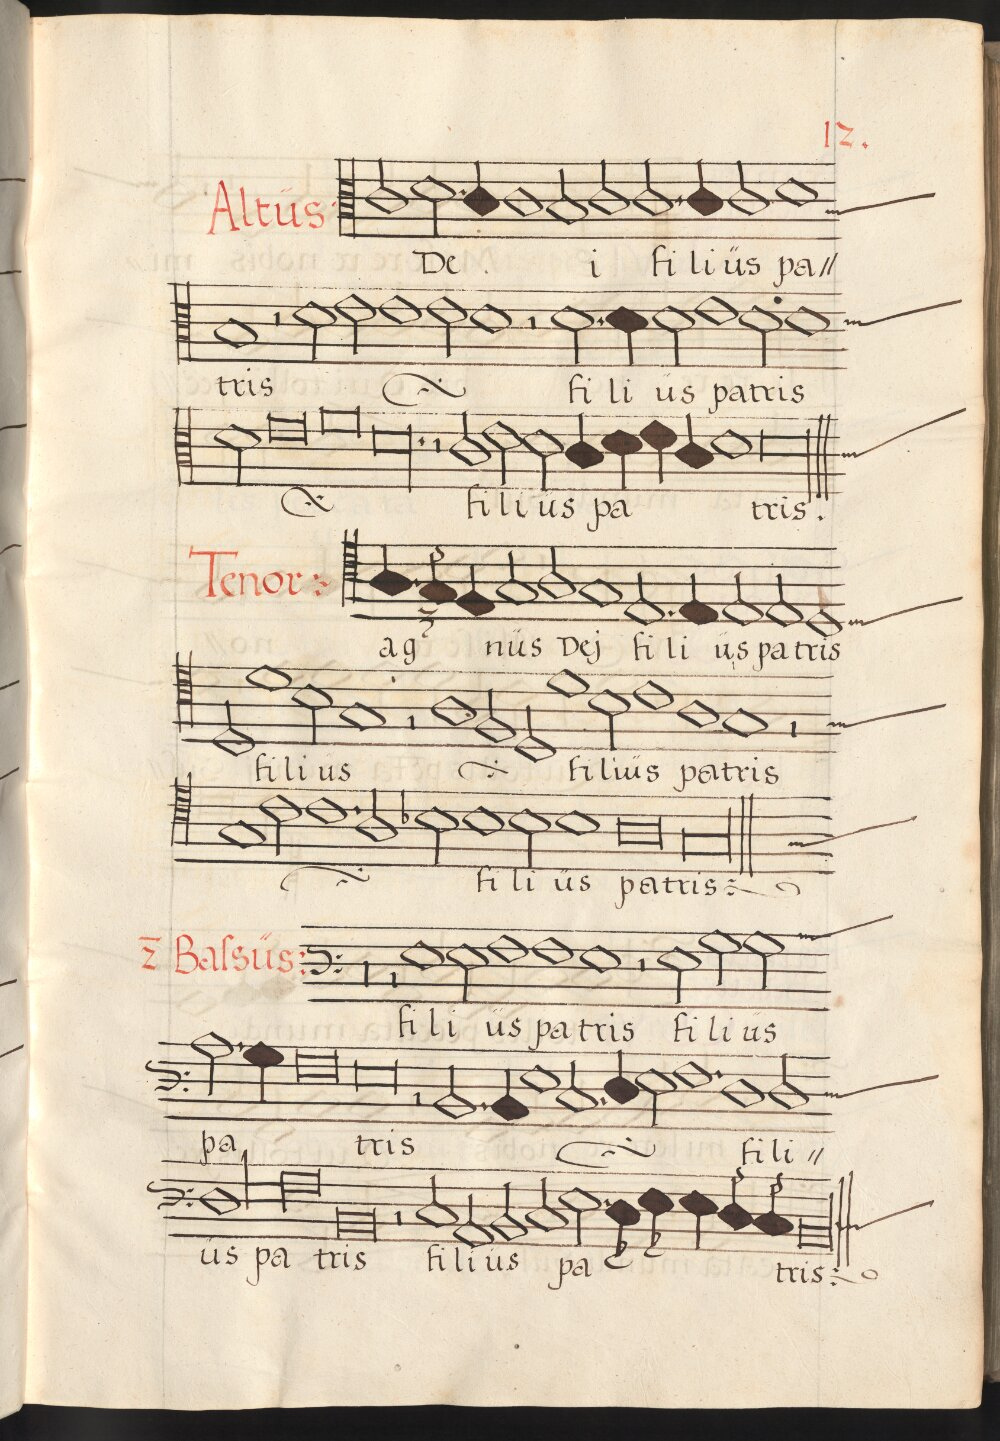 12.
Altüs:
De . i filiüs pa//
tris fili üs patris
filiüs pa tris.
Tenor:
ag nüs Dej fili üs patris
filiüs filiüs patris
fili üs patris:
2 Baſsüs:
fili üs patris filiüs
pa tris fili //
üs pa tris filiüs pa tris: